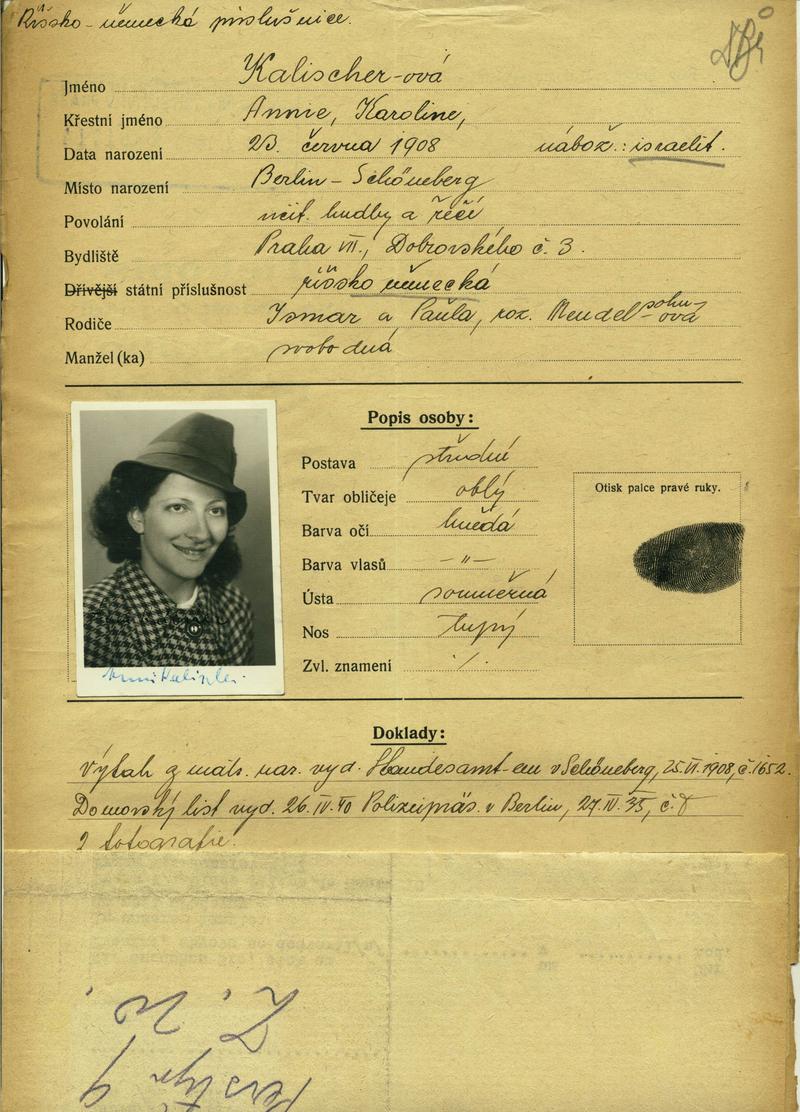 Říšsko-německá příslušnice.
Jméno Kalischer-ová
Křestní jméno Annie, Karoline,
Data narození 23. června 1908 nábož.: israelit.
Místo narození Berlin-Schöneberg
Povolání učit. hudby a řečí
Bydliště Praha VII., Dobrovského č. 3.
Dřívější státní příslušnost říšsko německá
Rodiče Ismar a Paula, roz. Mendelsohn-ová
Manžel (ka) svobodná
Popis osoby:
Postava
Tvar obličeje oblý
Barva očí hnědá
Barva vlasů -"-
Ústa souměrná
Nos tupý
Zvl. znamení ./.
Otisk palce pravé ruky.
Doklady:
Výtah z nar. vyd. Standesamt-em v Schöneberg, 25.VI.1908, č. 1652.
Domovský list vyd. 26.IV.40 Polizeipräs. v Berlin, 27.IV.35, č.
2 fotografie.